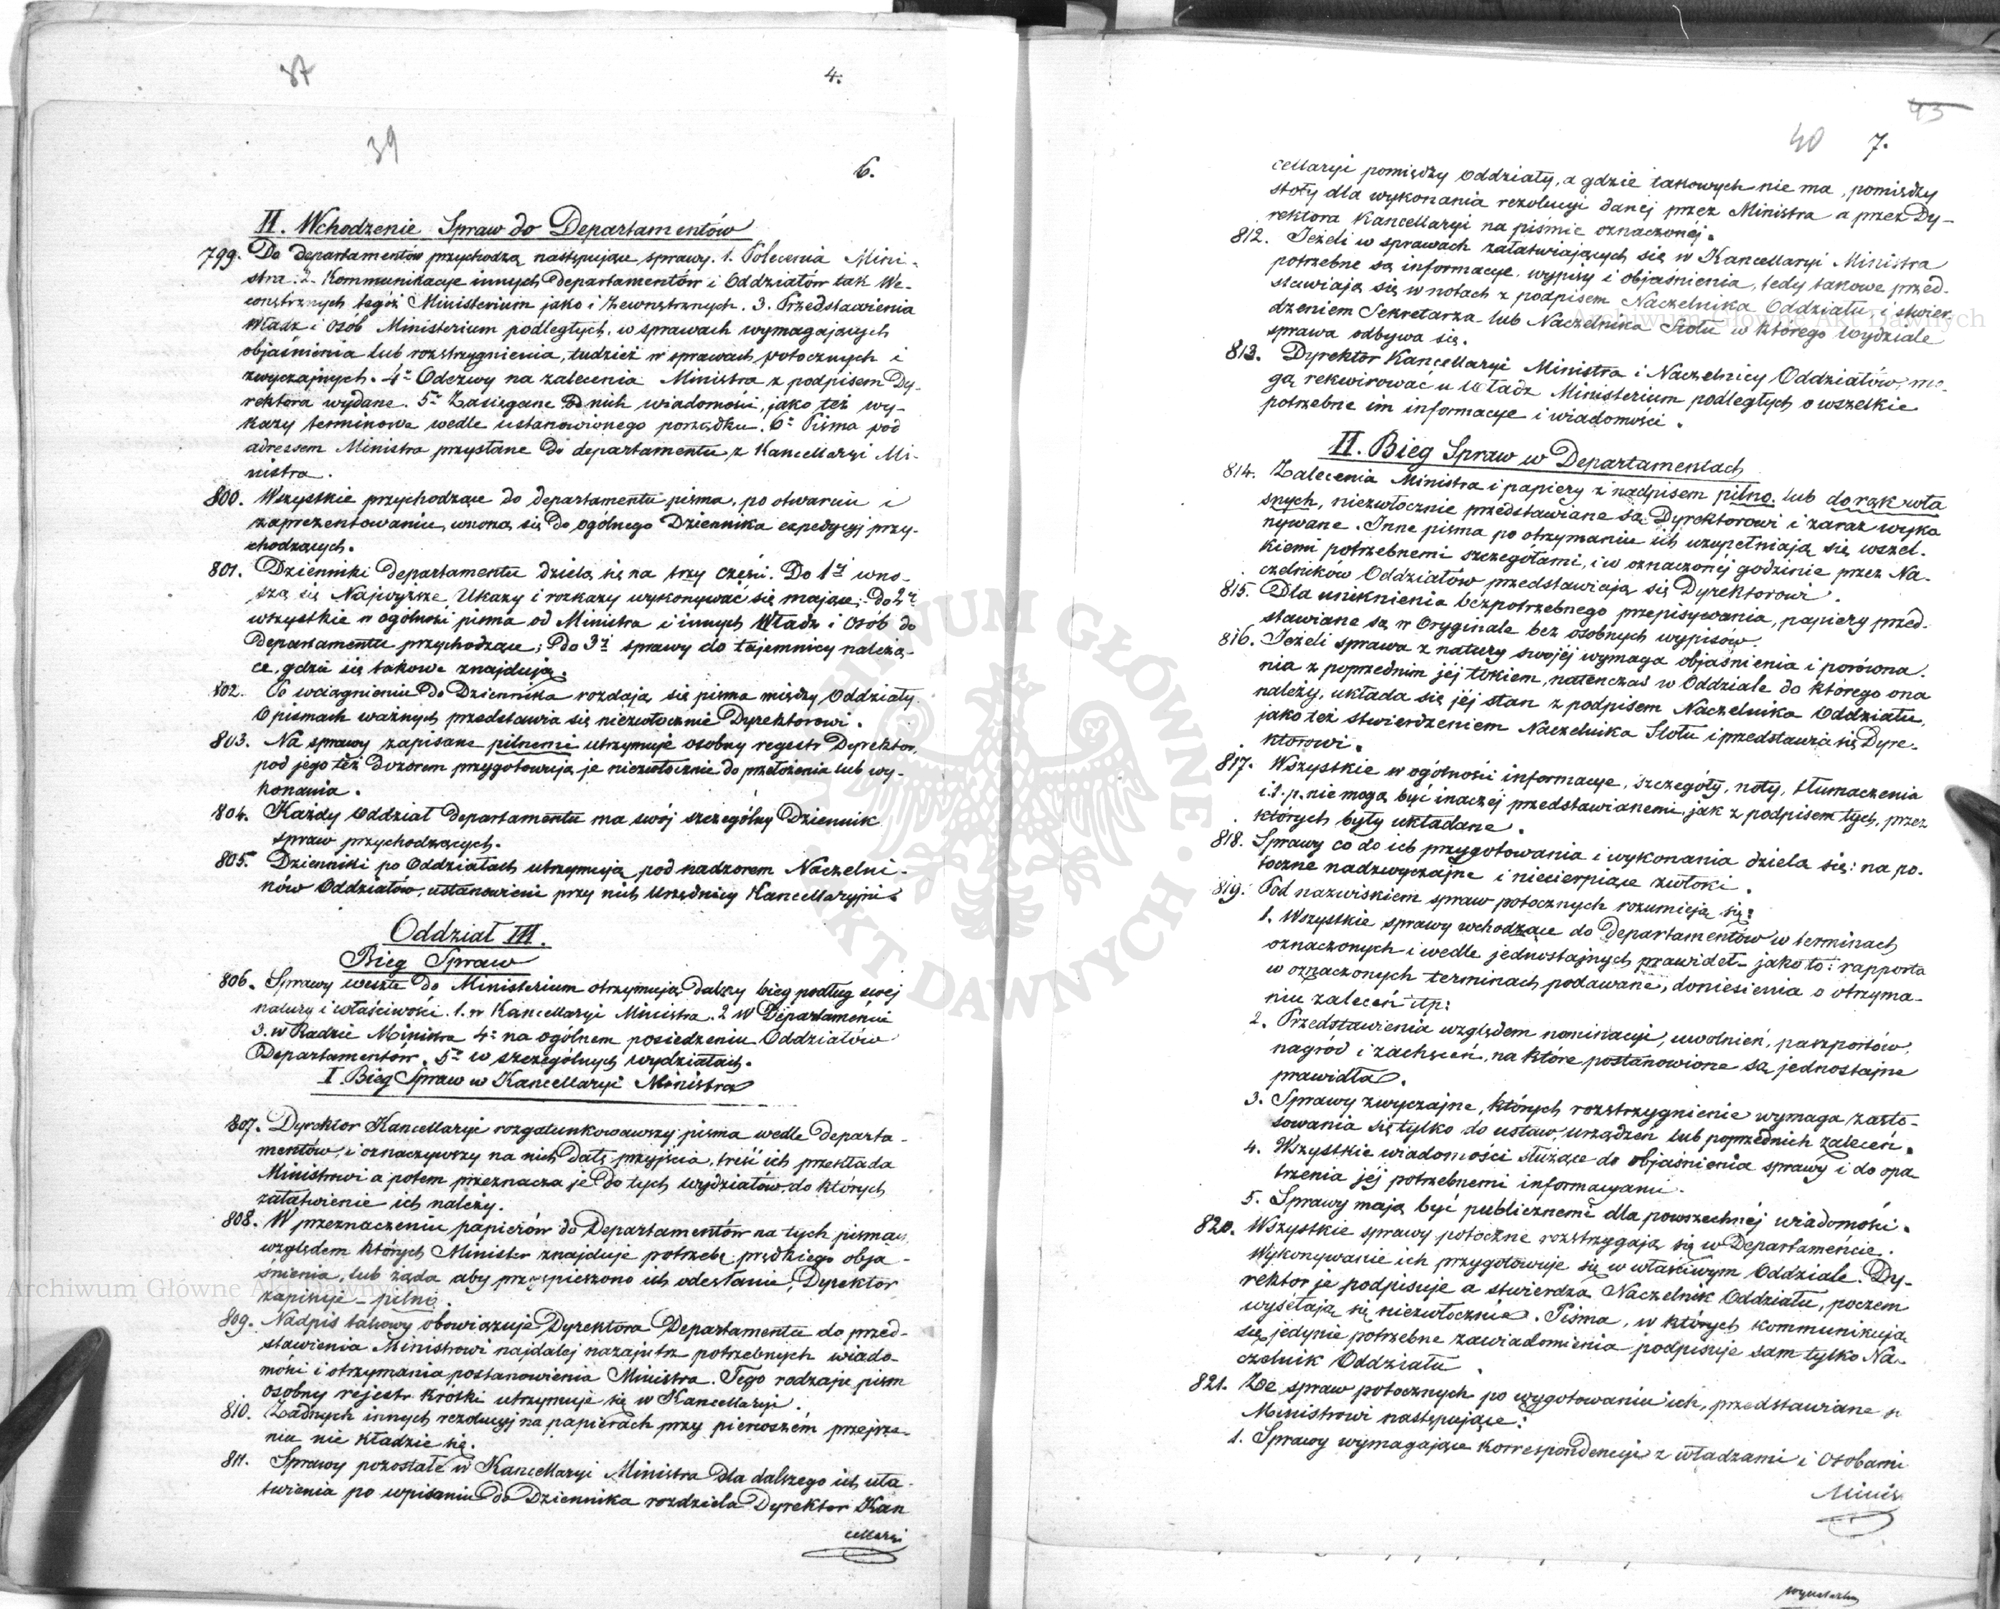 37
4.
39
6.
II. Wchodzenie Spraw do Departamentów
799. Do departamentów przychodzą następujące sprawy. 1. Polecenia Mini-
stra. 2. Kommunikacye innych Departamentów i Oddziałów tak We-
wnętrznych tegóż Ministerium jako i Zewnętrznych. 3. Przedstawienia
Władz i osób Ministerium podległych, w sprawach wymagających
objaśnienia lub rozstrzygnienia, tudzież w sprawach potocznych i
zwyczajnych. 4° Odezwy na zalecenia Ministra z podpisem Dy-
rektora wydane. 5° Zasięgane od nich wiadomości, jako też wy-
kazy terminowe wedle ustanowionego porządku. 6° Pisma pod
adressem Ministra przysłane do departamentu z Kancellaryi Mi-
nistra.
800. Wszystkie przychodzące do departamentu pisma, po otwarciu i
zaprezentowaniu, wnoszą się do ogólnego Dziennika expedycyj przy-
chodzących.
801. Dzienniki departamentu dzielą się na trzy części. Do 1éj wno-
szą się Najwyższe Ukazy i rozkazy wykonywać się mające; do 2éj
wszystkie w ogólności pisma od Ministra i innych Władz i osób do
Departamentu przychodzące; Do 3éj sprawy do tajemnicy należą-
ce, gdzie się takowe znajdują.
802. Po wciągnieniu do Dziennika rozdają się pisma między Oddziały.
O pismach ważnych przedstawia się niezwłocznie Dyrektorowi.
803. Na sprawy zapisane pilnemi utrzymuje osobny regestr Dyrektor,
pod jego też dozorem przygotowują je niezwłocznie do przełożenia lub wy-
konania.
804. Każdy Oddział departamentu ma swój szczególny Dziennik
spraw przychodzących.
805. Dzienniki po Oddziałach utrzymują pod nadzorem Naczelni-
ków Oddziałów, ustanowieni przy nich Urzędnicy Kancellaryjni.
Oddział III.
Bieg Spraw
806. Sprawy weszłe do Ministerium otrzymują dalszy bieg podług swéj
natury i właściwości. 1. w Kancellaryi Ministra. 2 w Departamencie
3. w Radzie Ministra 4° na ogólnem posiedzeniu Oddziałów
Departamentów. 5° w szczególnych wydziałach.
I Bieg Spraw w Kancellaryi Ministra
807. Dyrektor Kancellaryi rozgatunkowawszy pisma wedle departa-
mentów, i oznaczywszy na nich datę przyjścia, treść ich przekłada
Ministrowi a potem przeznacza je do tych wydziałów, do których
załatwienie ich należy.
808. W przeznaczeniu papierów do Departamentów na tych pismach
względem których Minister znajduje potrzebę prędkiego obja-
śnienia, lub żąda aby przyspieszono ich odesłanie, Dyrektor
zapisuje – pilne.
809. Nadpis takowy obowiązuje Dyrektora Departamentu do przed-
stawienia Ministrowi najdalej nazajutrz potrzebnych wiado-
mości i otrzymania postanowienia Ministra. Tego rodzaju pism
osobny rejestr krótki utrzymuje się w Kancellaryi.
810. Żadnych innych rezolucyj na papierach przy pierwszém przejrze-
niu nie kładzie się.
811. Sprawy pozostałe w Kancellaryi Ministra dla dalszego ich uła-
twienia po wpisaniu do Dziennika rozdziela Dyrektor Kan
cellaryi
43
40
7.
cellaryi pomiędzy Oddziały, a gdzie takowych nie ma, pomiędzy
stoły dla wykonania rezolucyi danéj przez Ministra a przez Dy-
rektora Kancellaryi na piśmie oznaczonéj.
812. Jeżeli w sprawach załatwiających się w Kancellaryi Ministra
potrzebne są informacye, wypisy i objaśnienia, tedy takowe przed-
stawiają się w notach z podpisem Naczelnika Oddziału, i stwier
dzeniem Sekretarza lub Naczelnika Stołu w którego wydziale
sprawa odbywa się.
813. Dyrektor Kancellaryi Ministra i Naczelnicy Oddziałów, mo-
gą rekwirować u Władz Ministerium podległych o wszelkie
potrzebne im informacye i wiadomości.
II. Bieg Spraw w Departamentach
814. Zalecenia Ministra i papiery z nadpisem pilno. lub do rąk wła
snych, niezwłocznie przedstawiane są Dyrektorowi i zaraz wyko
nywane. Inne pisma po otrzymaniu ich uzupełniają się wszel-
kiemi potrzebnemi szczegółami, i w oznaczonéj godzinie przez Na-
czelników Oddziałów przedstawiają się Dyrektorowi.
815. Dla uniknienia bezpotrzebnego przepisywania, papiery przed-
stawiane są w oryginale bez osobnych wypisów.
816. Jeżeli sprawa z natury swojéj wymaga objaśnienia i porówna-
nia z poprzednim jéj tokiem, natenczas w Oddziale do którego ona
należy, układa się jéj stan z podpisem Naczelnika Oddziału,
jako też stwierdzeniem Naczelnika Stołu i przedstawia się Dyre-
ktorowi.
817. Wszystkie w ogólności informacye, szczegóły, noty, tłumaczenia
i t. p. nie mogą być inaczéj przedstawianemi, jak z podpisem tych, przez
których były układane.
818. Sprawy co do ich przygotowania i wykonania dzielą się: na po-
toczne nadzwyczajne i niecierpiące zwłoki.
819. Pod nazwiskiem spraw potocznych rozumieją się:
1. Wszystkie sprawy wchodzące do departamentów w terminach
oznaczonych i wedle jednostajnych prawideł – jako to: rapporta
w oznaczonych terminach podawane, doniesienia o otrzyma-
niu zaleceń itp:
2. Przedstawienia względem nominacyi, uwolnień, paszportów,
nagród i zachęceń, na które postanowione są jednostajne
prawidła.
3. Sprawy zwyczajne, których rozstrzygnienie wymaga zasto-
sowania się tylko do ustaw, urządzeń lub poprzednich zaleceń.
4. Wszystkie wiadomości służące do objaśnienia sprawy i do opa
trzenia jéj potrzebnemi informacyami.
5. Sprawy mają być publicznemi dla powszechnéj wiadomości.
820. Wszystkie sprawy potoczne rozstrzygają się w Departamencie.
Wykonywanie ich przygotowuje się w właściwym Oddziale. Dy-
rektor je podpisuje a stwierdza Naczelnik Oddziału, poczem
wysyłają się niezwłocznie. Pisma, w których kommunikują
się jedynie potrzebne zawiadomienia podpisuje sam tylko Na-
czelnik Oddziału.
821. Ze spraw potocznych po wygotowaniu ich, przedstawiane są
Ministrowi następujące:
1. Sprawy wymagające korrespondencyi z władzami i osobami
Minis
Archiwum Główne Akt Dawnych
Archiwum Główne Akt Dawnych
ARCHIWUM GŁÓWNE · AKT DAWNYCH ·